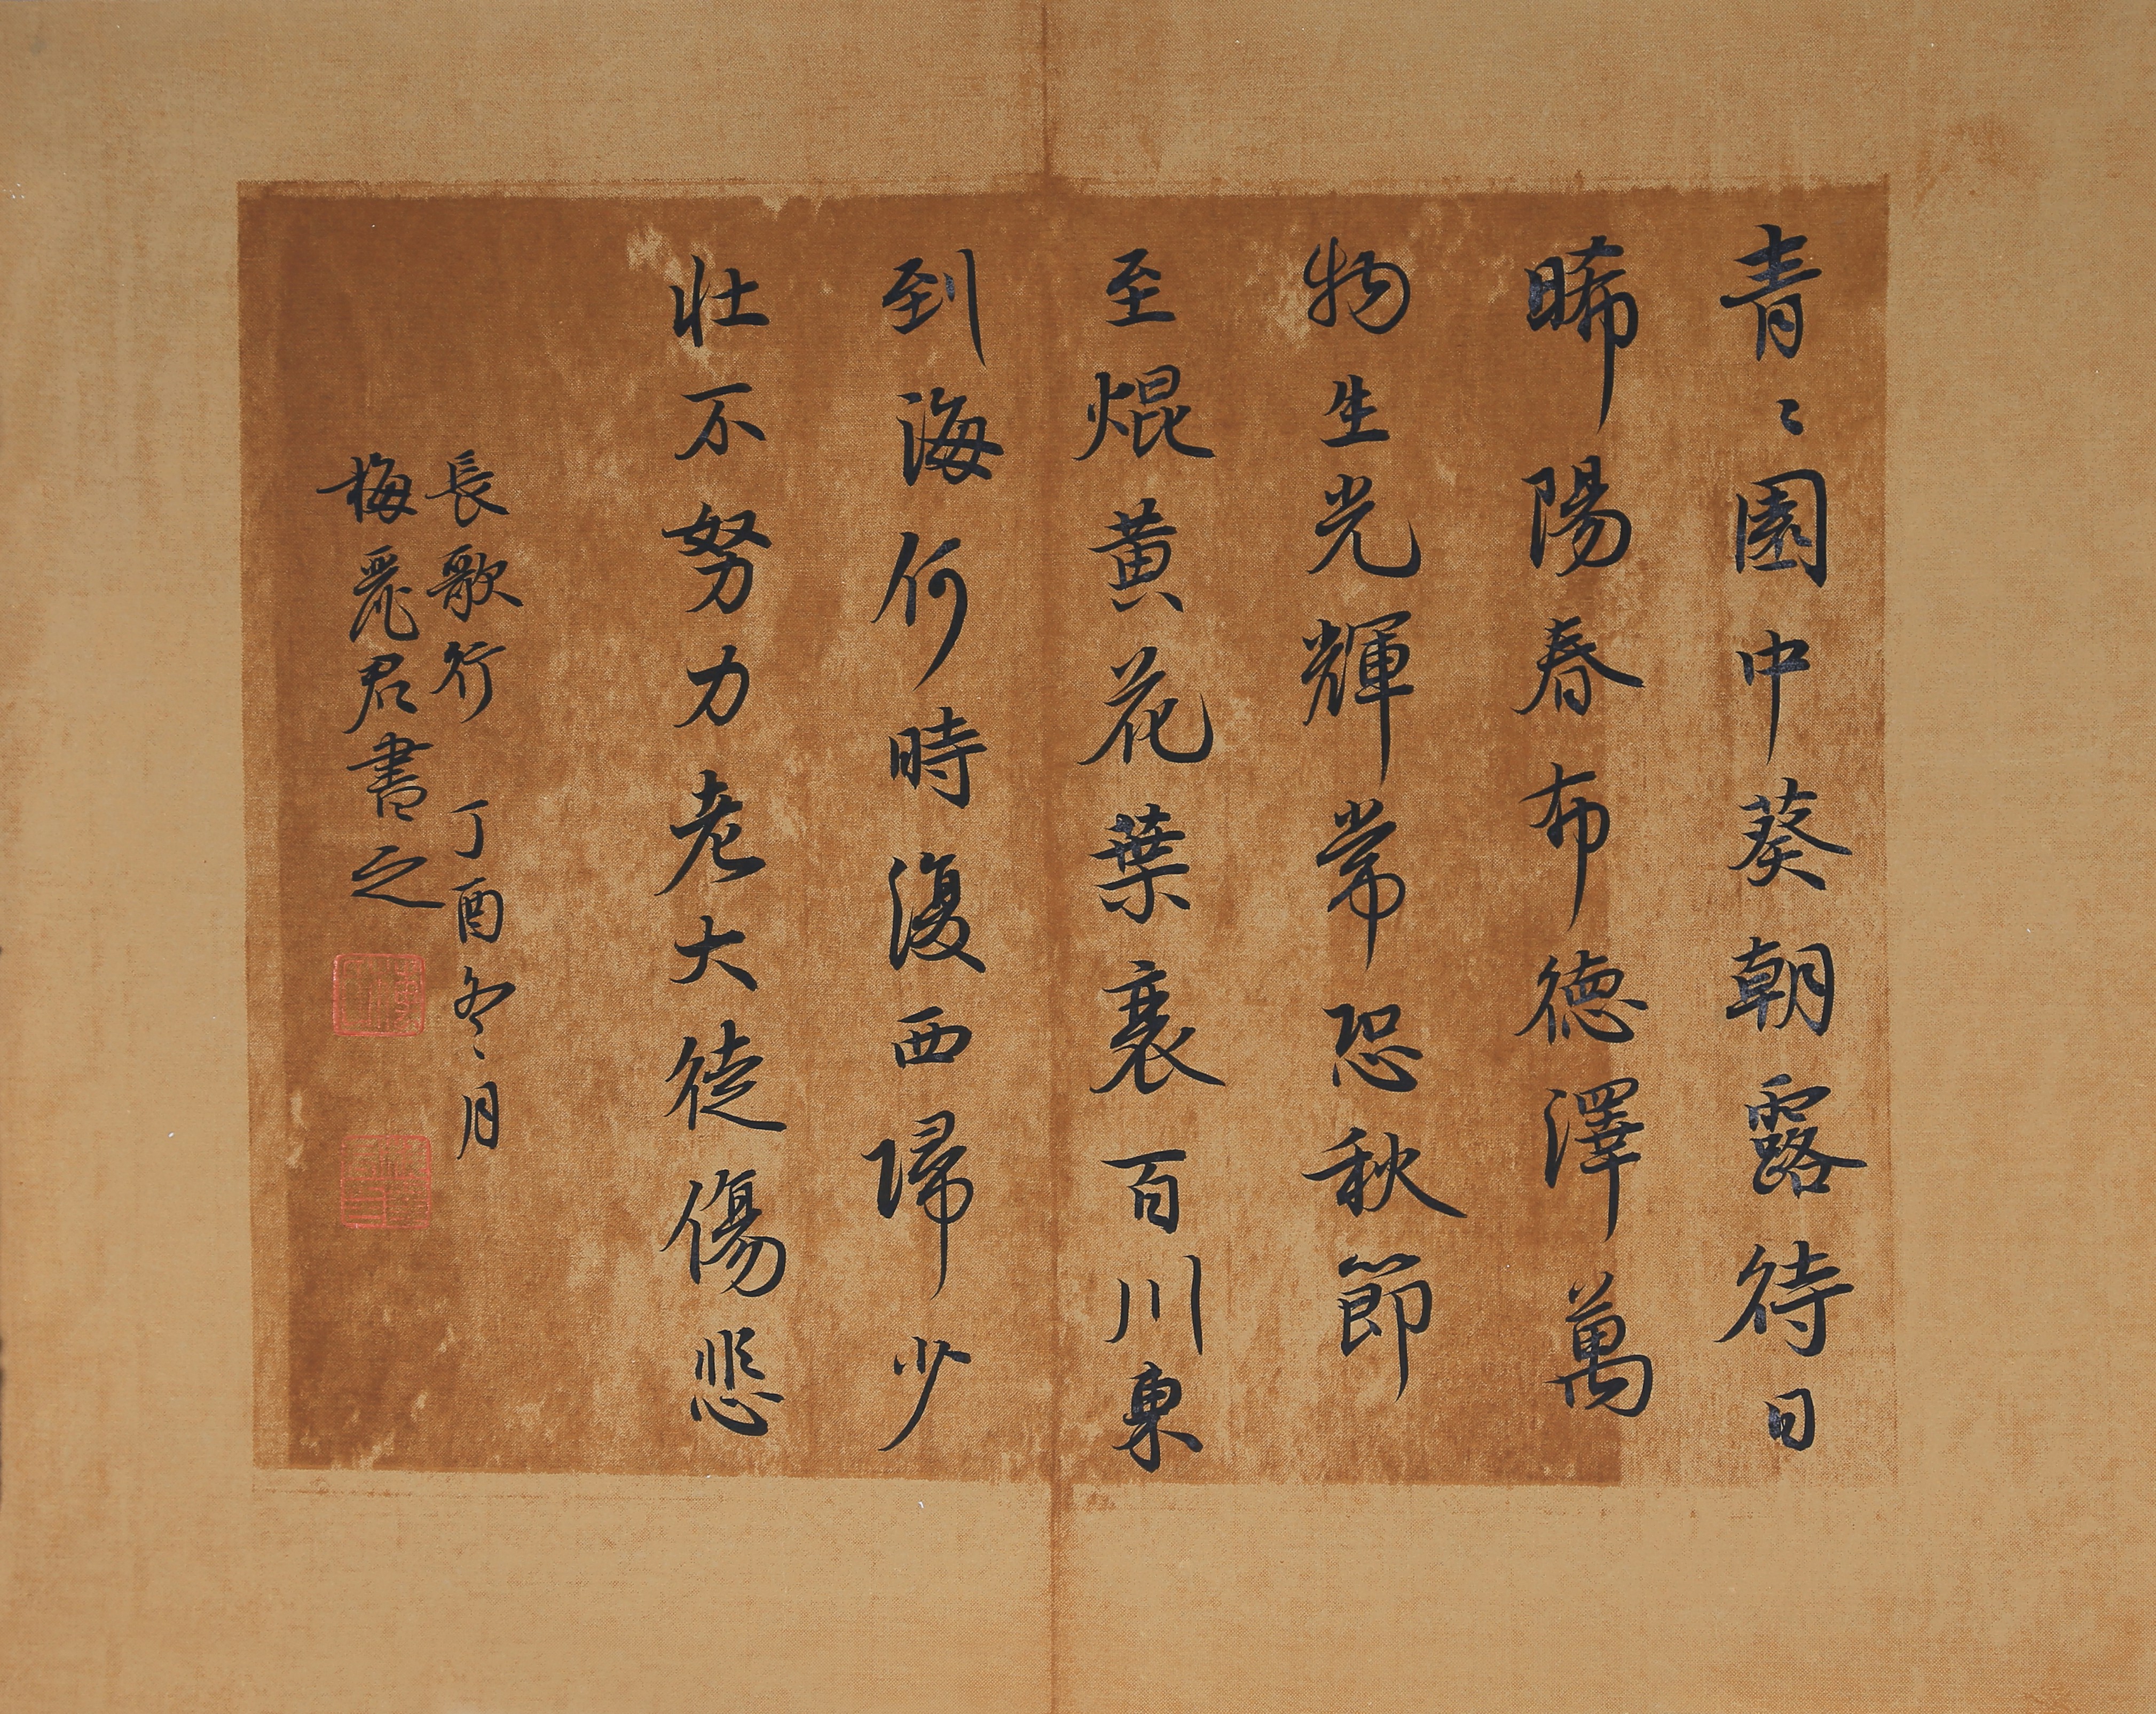 青〻園中葵朝露待日
晞陽春布德澤萬
物生光輝常恐秋節
至焜黃花葉衰百川東
到海何時復西歸少
壯不努力老大徒傷悲
長歌行 丁酉冬月
梅麗君書之